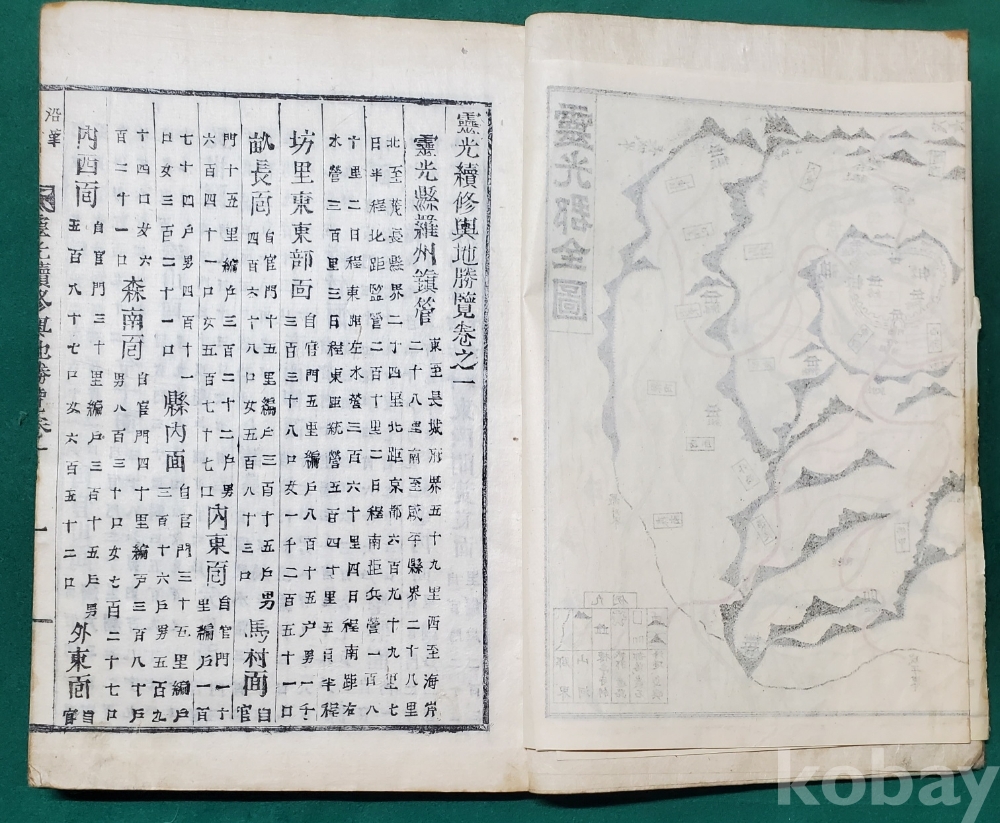 靈光郡全圖
靈光續修輿地勝覽卷之一
靈光縣羅州鎭管
東至長城府界五十九里西至海岸
二十八里南至咸平縣界二十八里
北至茂長縣界二十四里北距京都六百九十九里七
日半程北距監營二百十里二日程南距兵營一百八
十里二日程東距左水營三百六十里四日程南距右
水營三百三里三日程東距統營五百四十里五日半程
坊里東東部面
自官門五里編戶八百十五戶男一千
三百三十八口女一千二百五十一口
畝長面
自官門十五里編戶三百十五戶男
四百六十八口女五百八十三口
馬村面
自
官
門十五里編戶三百二十二戶男
六百四十一口女五百七十七口
內東面
自官門二十
里編戶一百
七十四戶男四百十一
口女三百二十一口
縣內面
自官門三十五里編戶
三百十六戶男五百九
十四口女六
百二十一口
森南面
自官門四十里編戶三百八十戶
男八百三十口女七百二十七口
內西面
自官門三十里編戶三百十五戶男
五百八十七口女六百五十二口
外東面
自
官
沿革
靈光續修輿地勝覽卷之一
一
kobay